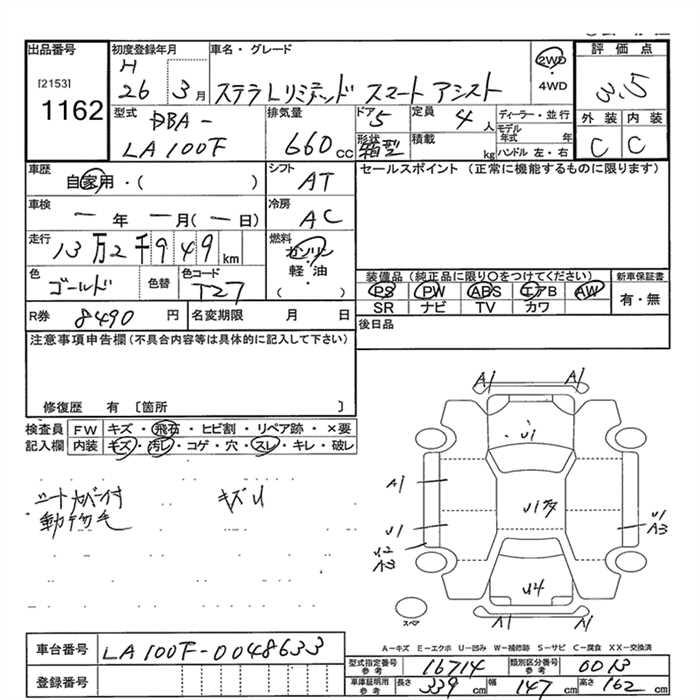 出品番号
[2153]
1162
初度登録年月
H
26 3月
車名・グレード
ステラLリミテッド スマートアシスト
2WD
・
4WD
評価点
3.5
外装 内装
C C
型式
DBA-
LA100F
排気量
660cc
ドア
5
形状
箱型
定員
4人
積載
kg
ディーラー・並行
モデル年式 年
ハンドル 左・右
車歴
自家用・( )
シフト
AT
セールスポイント (正常に機能するものに限ります)
車検
一年一月(一日)
冷房
AC
走行
13万2千949km
燃料
ガソリン
・
軽油
・
( )
色
ゴールド
色替
色コード
T27
装備品 (純正品に限り○をつけてください)
PS PW ABS エアB AW
SR ナビ TV カワ
新車保証書
有・無
R券 8490円
名変期限 月 日
後日品
注意事項申告欄(不具合内容等は具体的に記入して下さい)
修復歴 有 〔箇所 〕
検査員記入欄
FW キズ・飛石・ヒビ割・リペア跡・×要
内装 キズ・汚レ・コゲ・穴・スレ・キレ・破レ
シートカバー付 キズU
動物毛
A1 A1
U1
A1
U1ダメ
U1
U2
A3
U1
A3
U4
A1 A1
スペア
A-キズ E-エクボ U-凹み W-補修跡 S-サビ C-腐食 XX-交換済
車台番号 LA100F-0048633
登録番号
型式指定番号
参考
16714
類別区分番号
参考
0013
車庫証明用
参考
長さ 339cm 幅 147cm 高さ 162cm